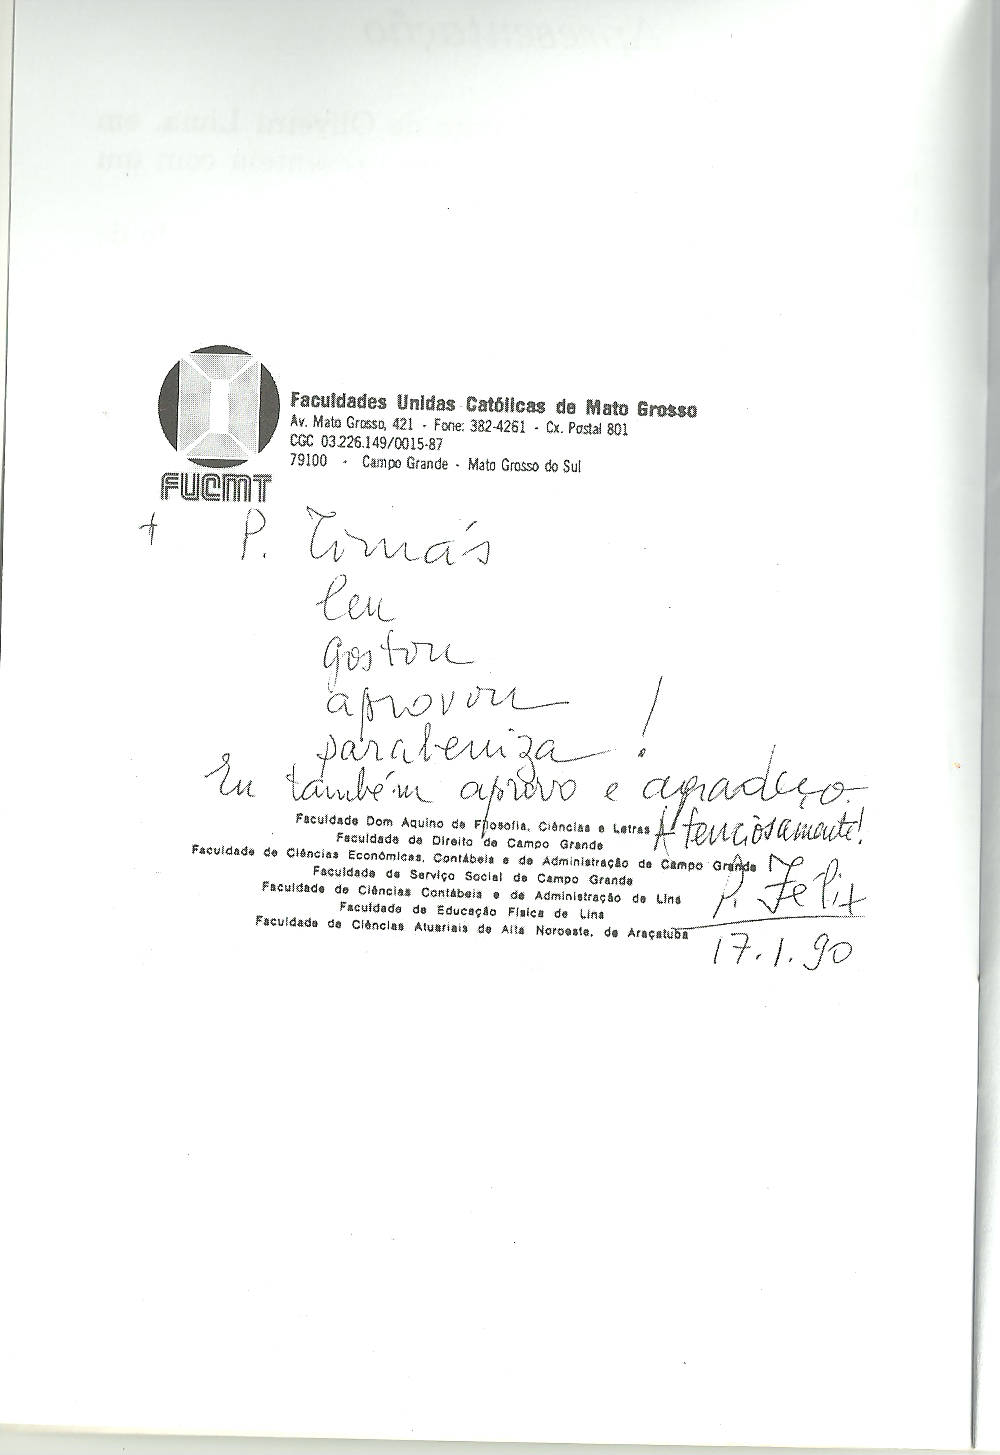 Faculdades Unidas Católicas de Mato Grosso
Av. Mato Grosso, 421 - Fone: 382-4261 - Cx. Postal 801
CGC 03.226.149/0015-87
79100 - Campo Grande - Mato Grosso do Sul
FUCMT
+ P. Tomás
leu
gostou
aprovou
parabeniza !
Eu também aprovo e agradeço.
Atenciosamente!
P. Félix
17.1.90
Faculdade Dom Aquino de Filosofia, Ciências e Letras
Faculdade de Direito de Campo Grande
Faculdade de Ciências Econômicas, Contábeis e de Administração de Campo Grande
Faculdade de Serviço Social de Campo Grande
Faculdade de Ciências Contábeis e de Administração de Lins
Faculdade de Educação Física de Lins
Faculdade de Ciências Atuariais de Alta Noroeste, de Araçatuba